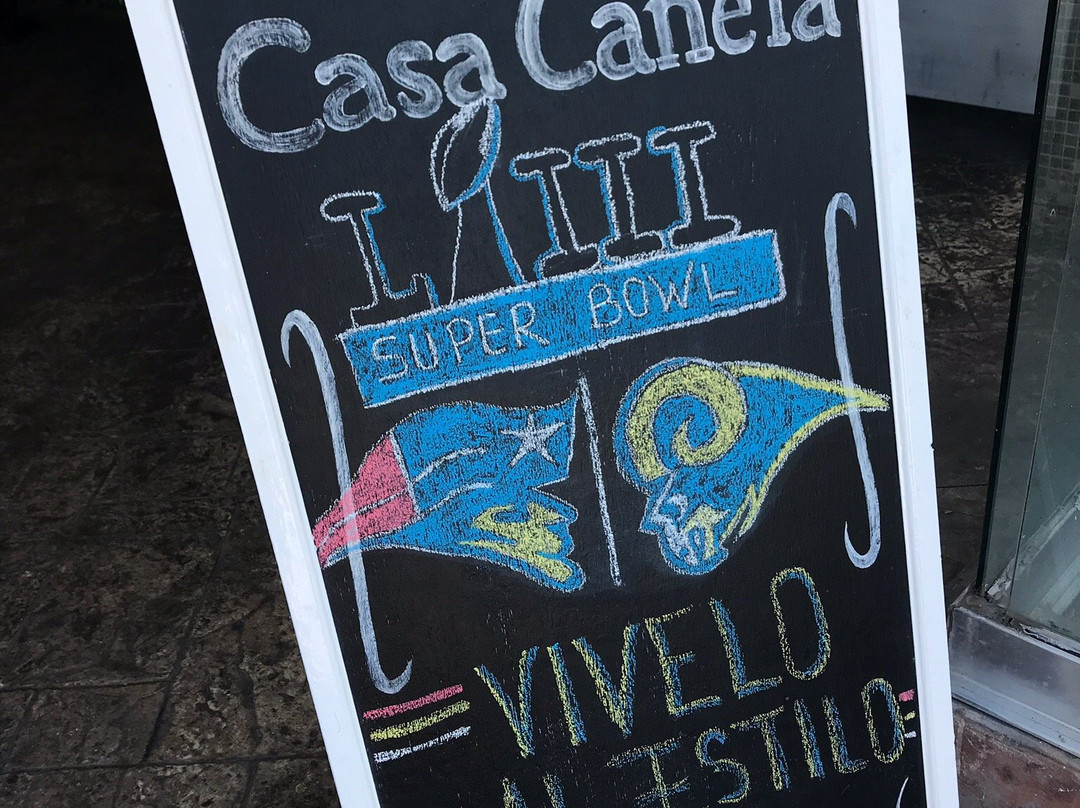 Casa Canela
LIII
SUPER BOWL
VIVELO
AL ESTILO